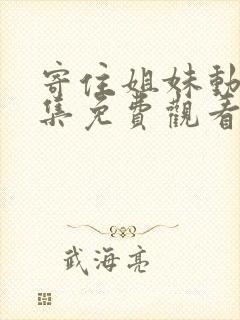 寄住姐妹動
集免費觀看
武海亮